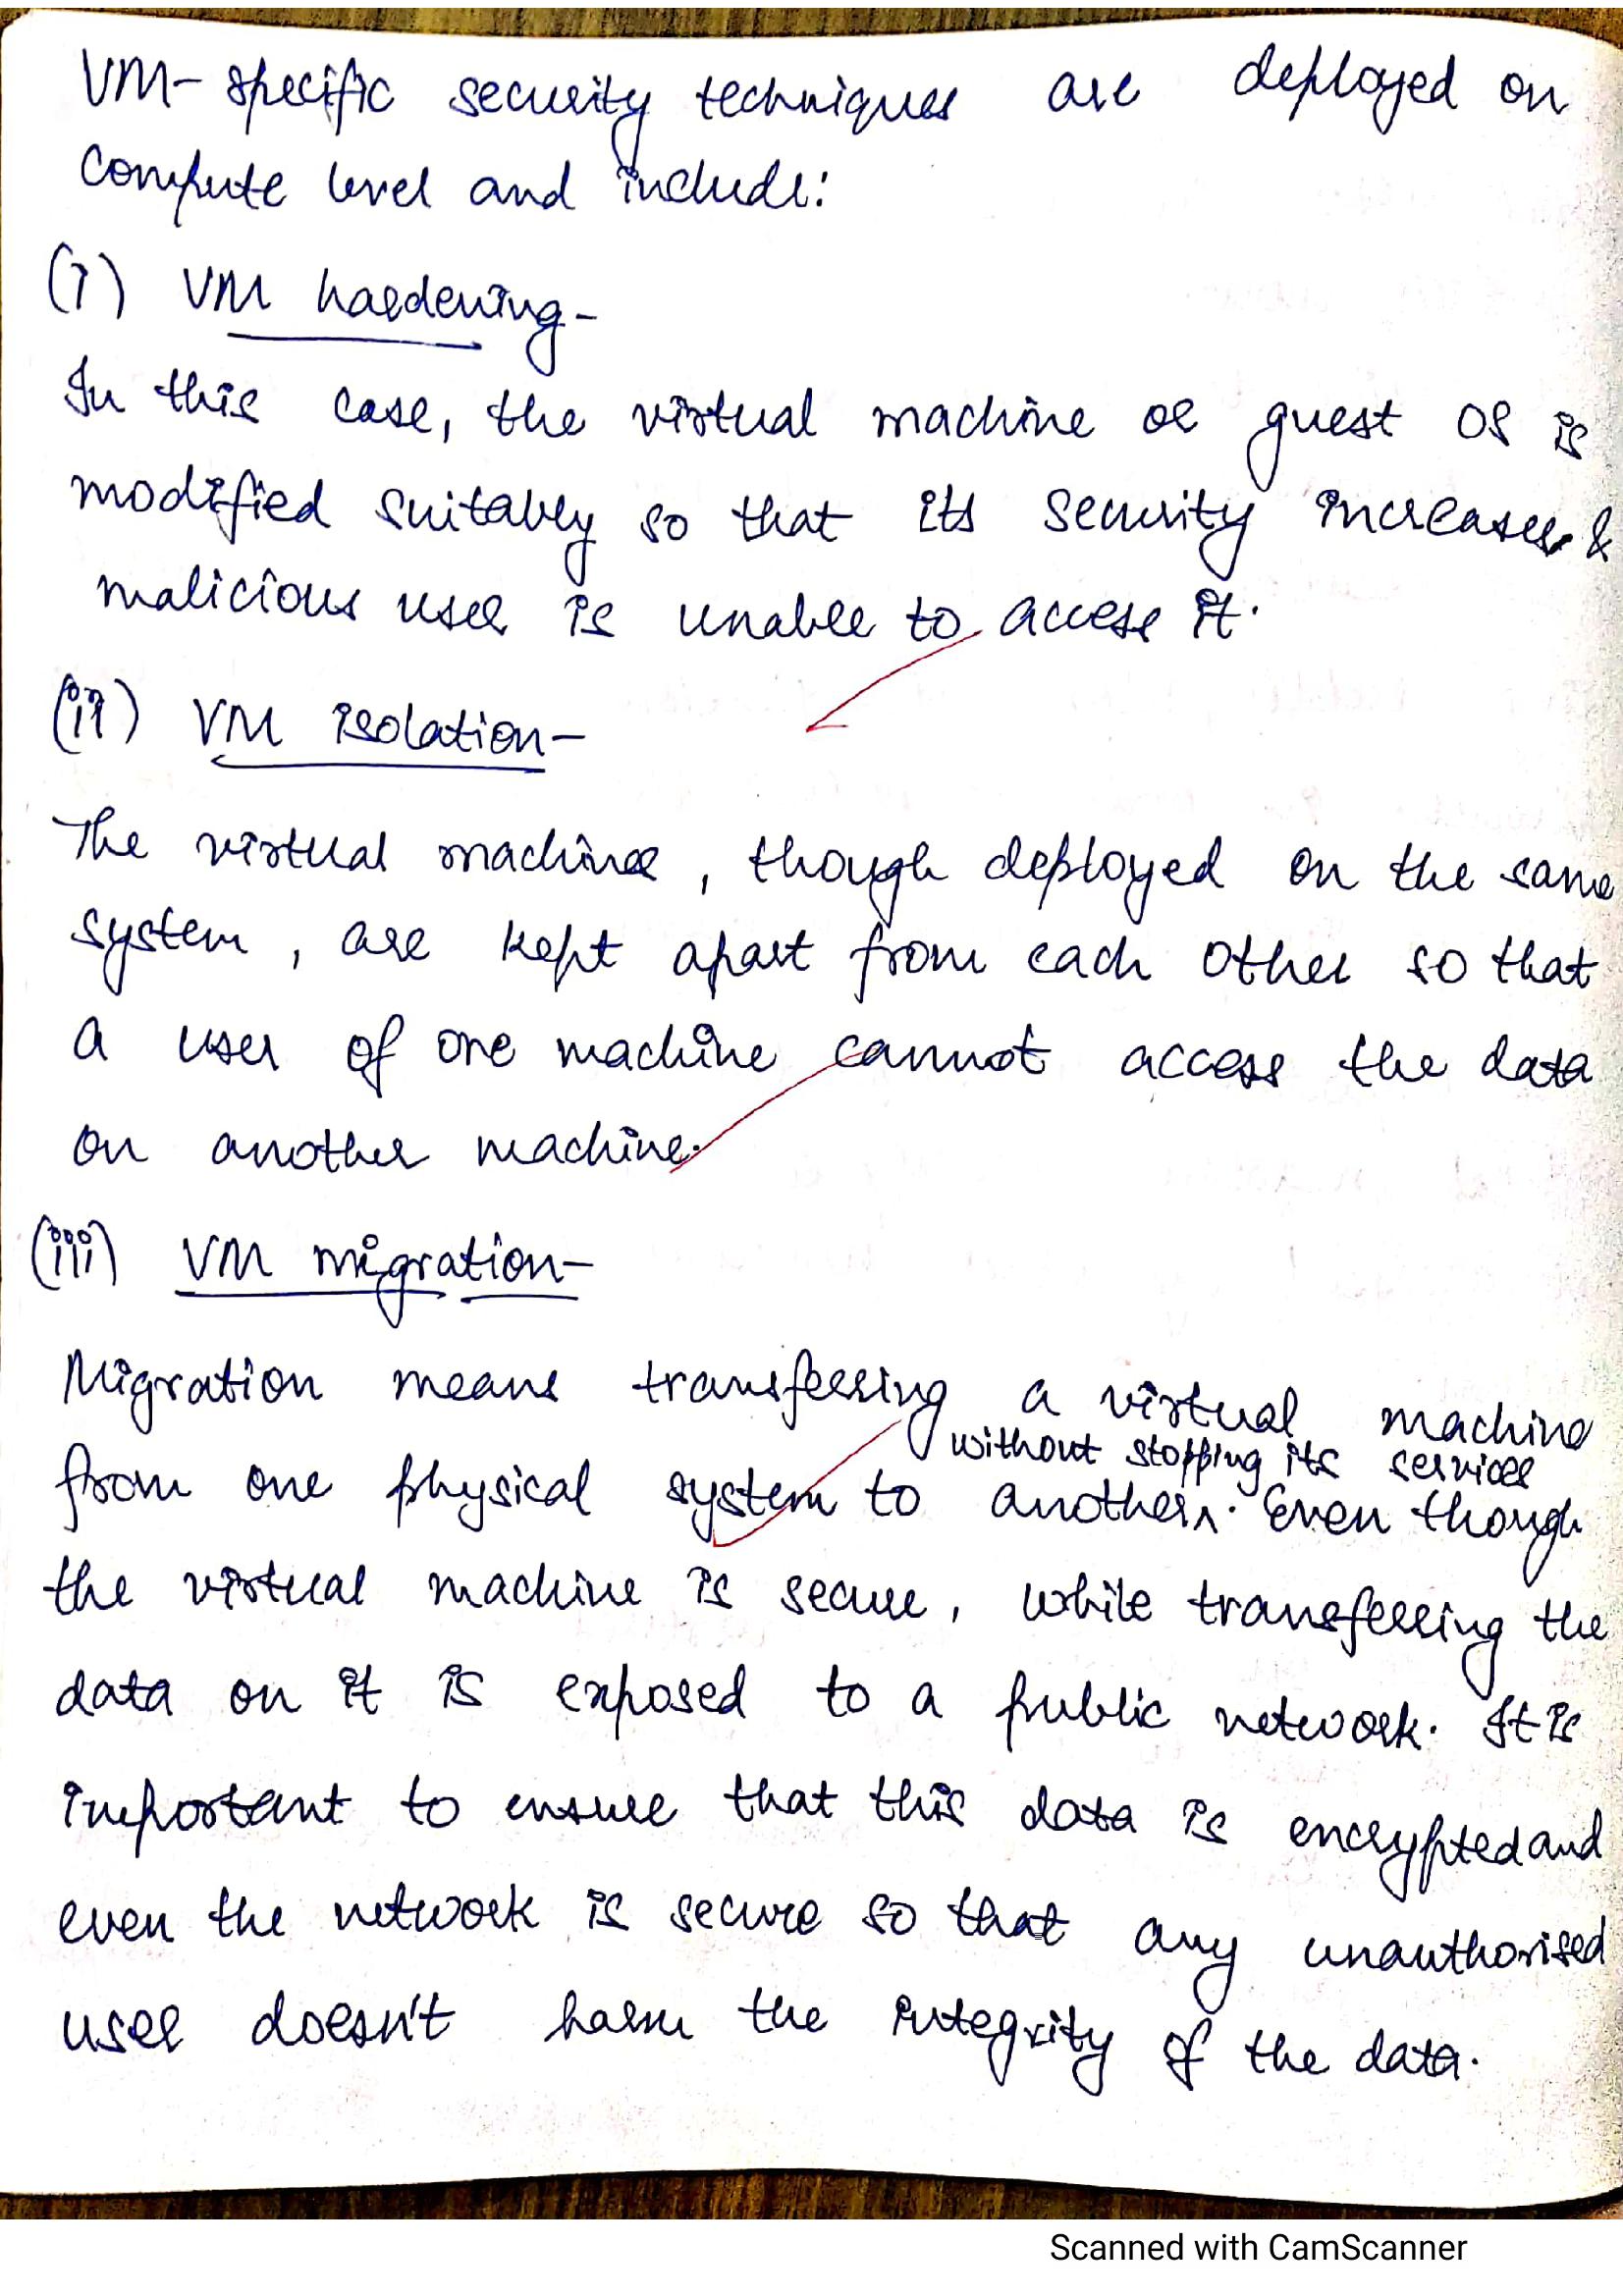 VM-specific security techniques are deployed on
compute level and include:
(i) VM hardening-
In this case, the virtual machine or guest OS is
modified suitably so that its security increases &
malicious user is unable to access it.
(ii) VM isolation-
The virtual machines, though deployed on the same
system, are kept apart from each other so that
a user of one machine cannot access the data
on another machine.
(iii) VM migration-
Migration means transferring a virtual machine
without stopping its services
from one physical system to another^. Even though
the virtual machine is secure, while transferring the
data on it is exposed to a public network. It is
important to ensure that this data is encrypted and
even the network is secure so that any unauthorised
user doesn't harm the integrity of the data.
Scanned with CamScanner